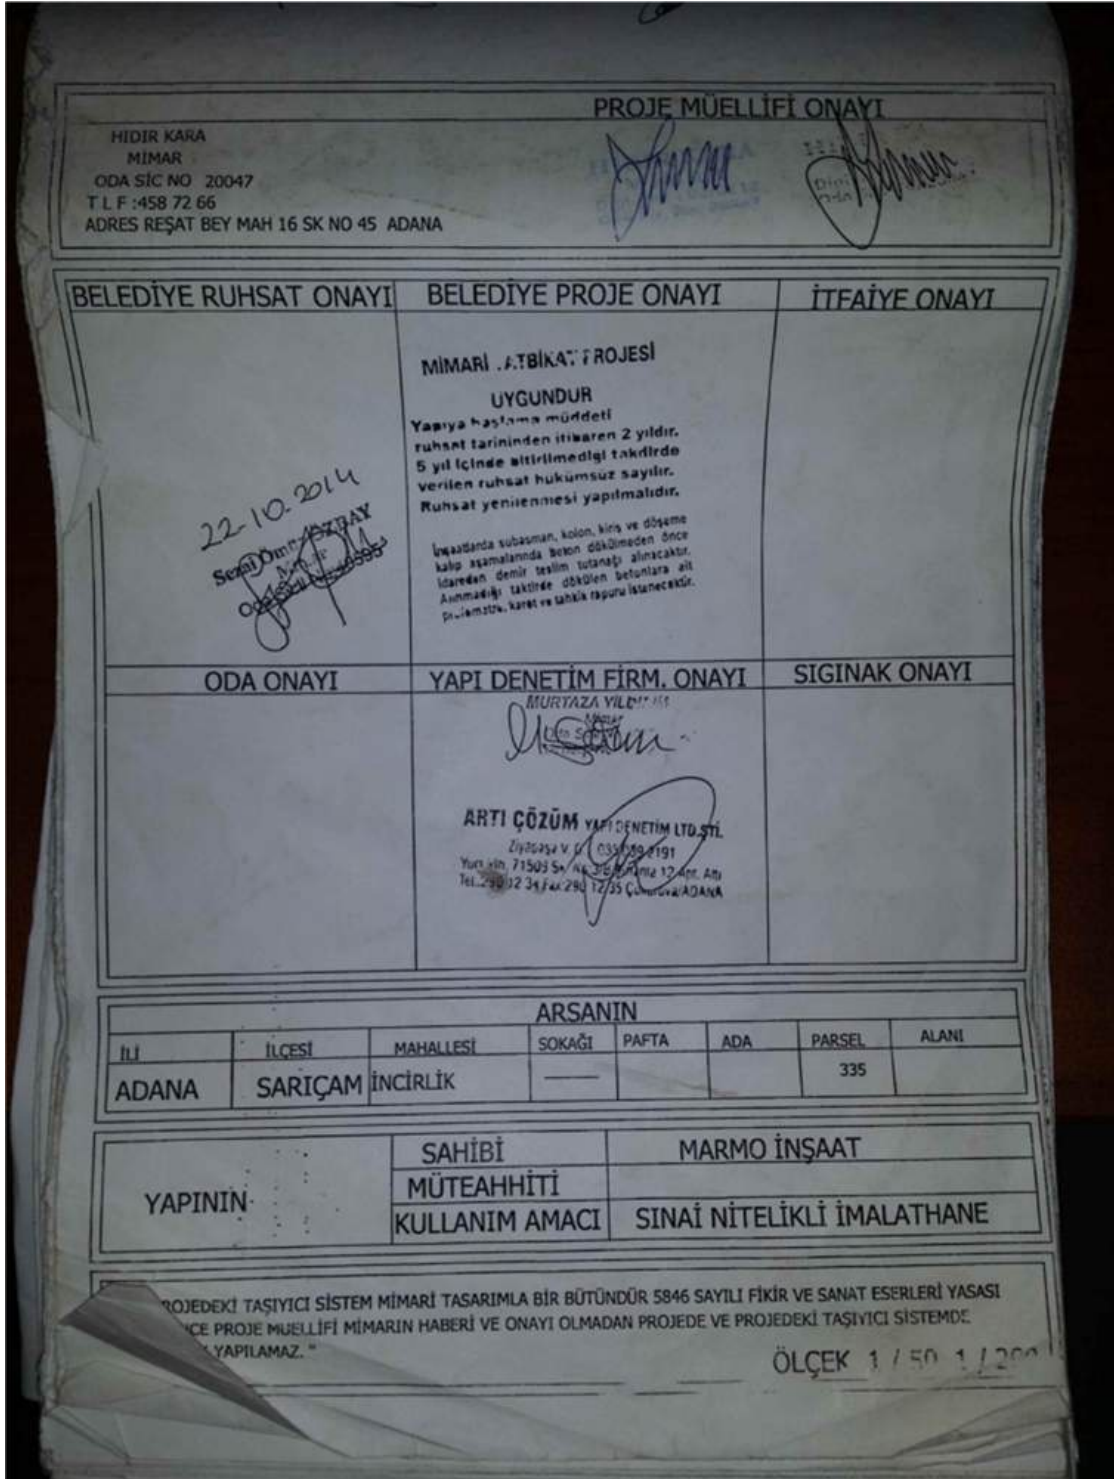 PROJE MÜELLİFİ ONAYI
HIDIR KARA
MİMAR
ODA SİC NO 20047
T L F :458 72 66
ADRES REŞAT BEY MAH 16 SK NO 45 ADANA
BELEDİYE RUHSAT ONAYI
BELEDİYE PROJE ONAYI
İTFAİYE ONAYI
MİMARİ PROJESİ
UYGUNDUR
Yapıya başlama müddeti
ruhsat tarihinden itibaren 2 yıldır.
5 yıl içinde bitirilmediği takdirde
verilen ruhsat hükümsüz sayılır.
Ruhsat yenilenmesi yapılmalıdır.
İnşaatlarda subasman, kolon, kiriş ve döşeme
kalıp aşamalarında beton dökülmeden önce
İdareden demir teslim tutanağı alınacaktır.
Alınmadığı taktirde dökülen betonlara ait
karot ve tahkik raporu istenecektir.
22.10.2014
Sezai
Mimar
ODA ONAYI
YAPI DENETİM FİRM. ONAYI
SIGINAK ONAYI
MURTAZA
Mimar
ARTI ÇÖZÜM YAPI DENETİM LTD.ŞTİ.
Ziyapaşa V. D.
71509 12 Apt. Altı
Tel.:290 12 34 Fax:290 12 35 Çukurova/ADANA
ARSANIN
İLİ İLÇESİ MAHALLESİ SOKAĞI PAFTA ADA PARSEL ALANI
ADANA SARIÇAM İNCİRLİK 335
YAPININ
SAHİBİ MARMO İNŞAAT
MÜTEAHHİTİ
KULLANIM AMACI SINAİ NİTELİKLİ İMALATHANE
TAŞIYICI SİSTEM MİMARİ TASARIMLA BİR BÜTÜNDÜR 5846 SAYILI FİKİR VE SANAT ESERLERİ YASASI
PROJE MUELLİFİ MİMARIN HABERİ VE ONAYI OLMADAN PROJEDE VE PROJEDEKİ TAŞIYICI SİSTEMDE
YAPILAMAZ. "
ÖLÇEK 1 / 50 1 / 200